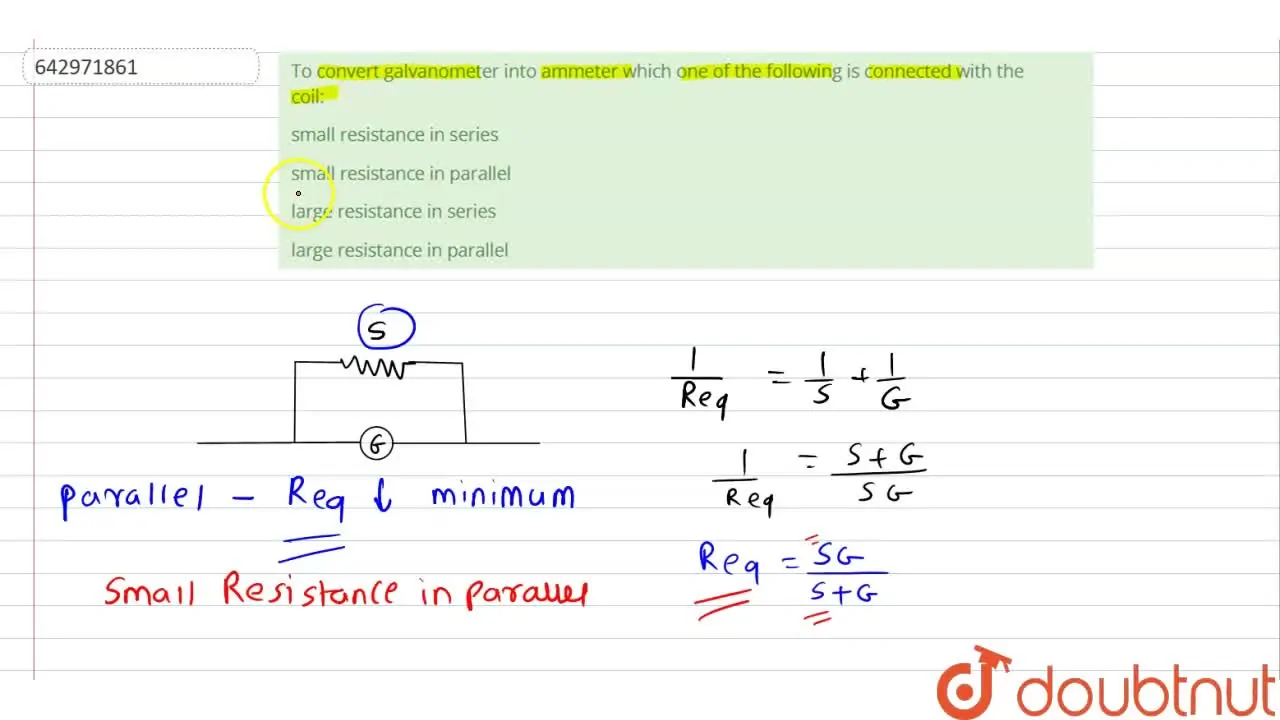 642971861
To convert galvanometer into ammeter which one of the following is connected with the
coil:
small resistance in series
small resistance in parallel
large resistance in series
large resistance in parallel
S
G
parallel - Req ↓ minimum
Small Resistance in parallel
1/Req = 1/S + 1/G
1/Req = S+G/SG
Req = SG/S+G
doubtnut